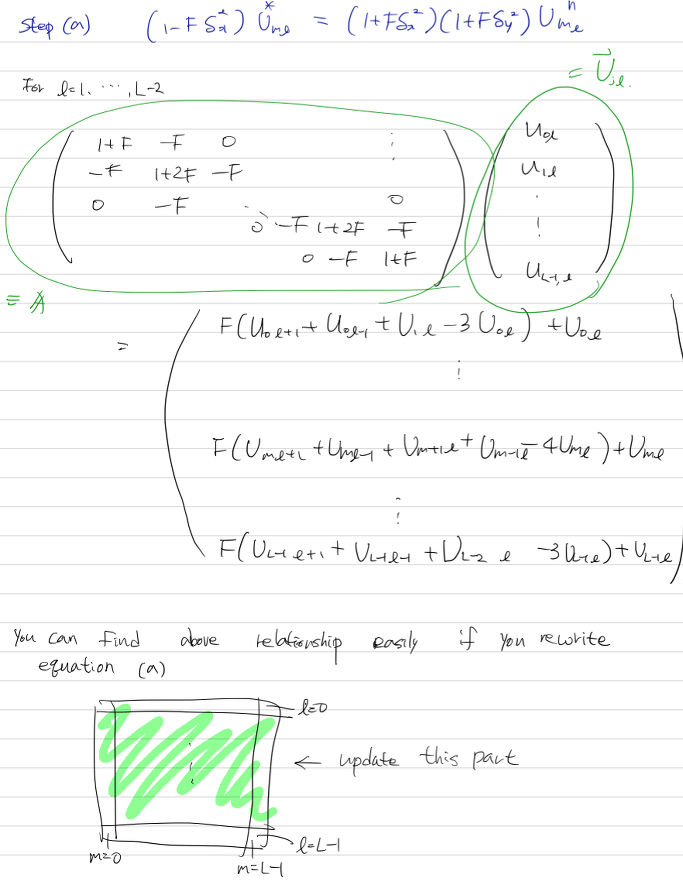 Step (a) (1-Fδ_x^2) U*_{mℓ} = (1+Fδ_x^2)(1+Fδ_y^2) U^n_{mℓ}
= U⃗_{jℓ}.
For ℓ=1, ⋯, L-2
1+F -F 0 ⋮ U_{0ℓ}
-F 1+2F -F U_{1ℓ}
0 -F ⋱ 0 ⋮
0 -F 1+2F -F
0 -F 1+F U_{L-1,ℓ}
≡ A
= F(U_{0ℓ+1} + U_{0ℓ-1} + U_{1ℓ} - 3U_{0ℓ}) + U_{0ℓ}
⋮
F(U_{mℓ+1} + U_{mℓ-1} + U_{m+1ℓ} + U_{m-1ℓ} - 4U_{mℓ}) + U_{mℓ}
⋮
F(U_{L-1ℓ+1} + U_{L-1ℓ-1} + U_{L-2 ℓ} -3U_{L-1ℓ}) + U_{L-1ℓ}
You can find above relationship easily if you rewrite
equation (a)
ℓ=0
← update this part
ℓ=L-1
m=0 m=L-1